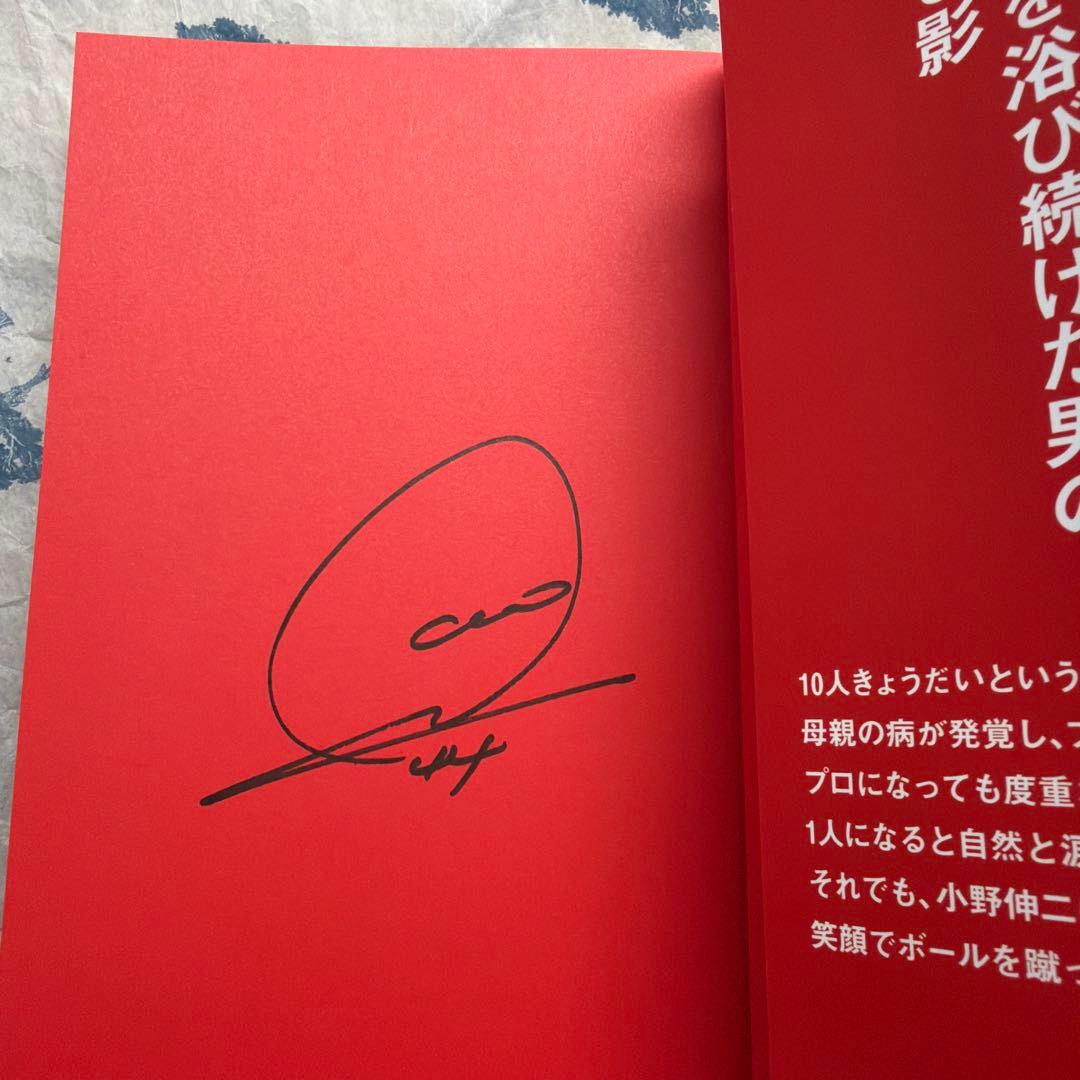 を浴び続けた男の
影
10人きょうだいという
母親の病が発覚し、
プロになっても度重
1人になると自然と涙
それでも、小野伸二
笑顔でボールを蹴っ
44